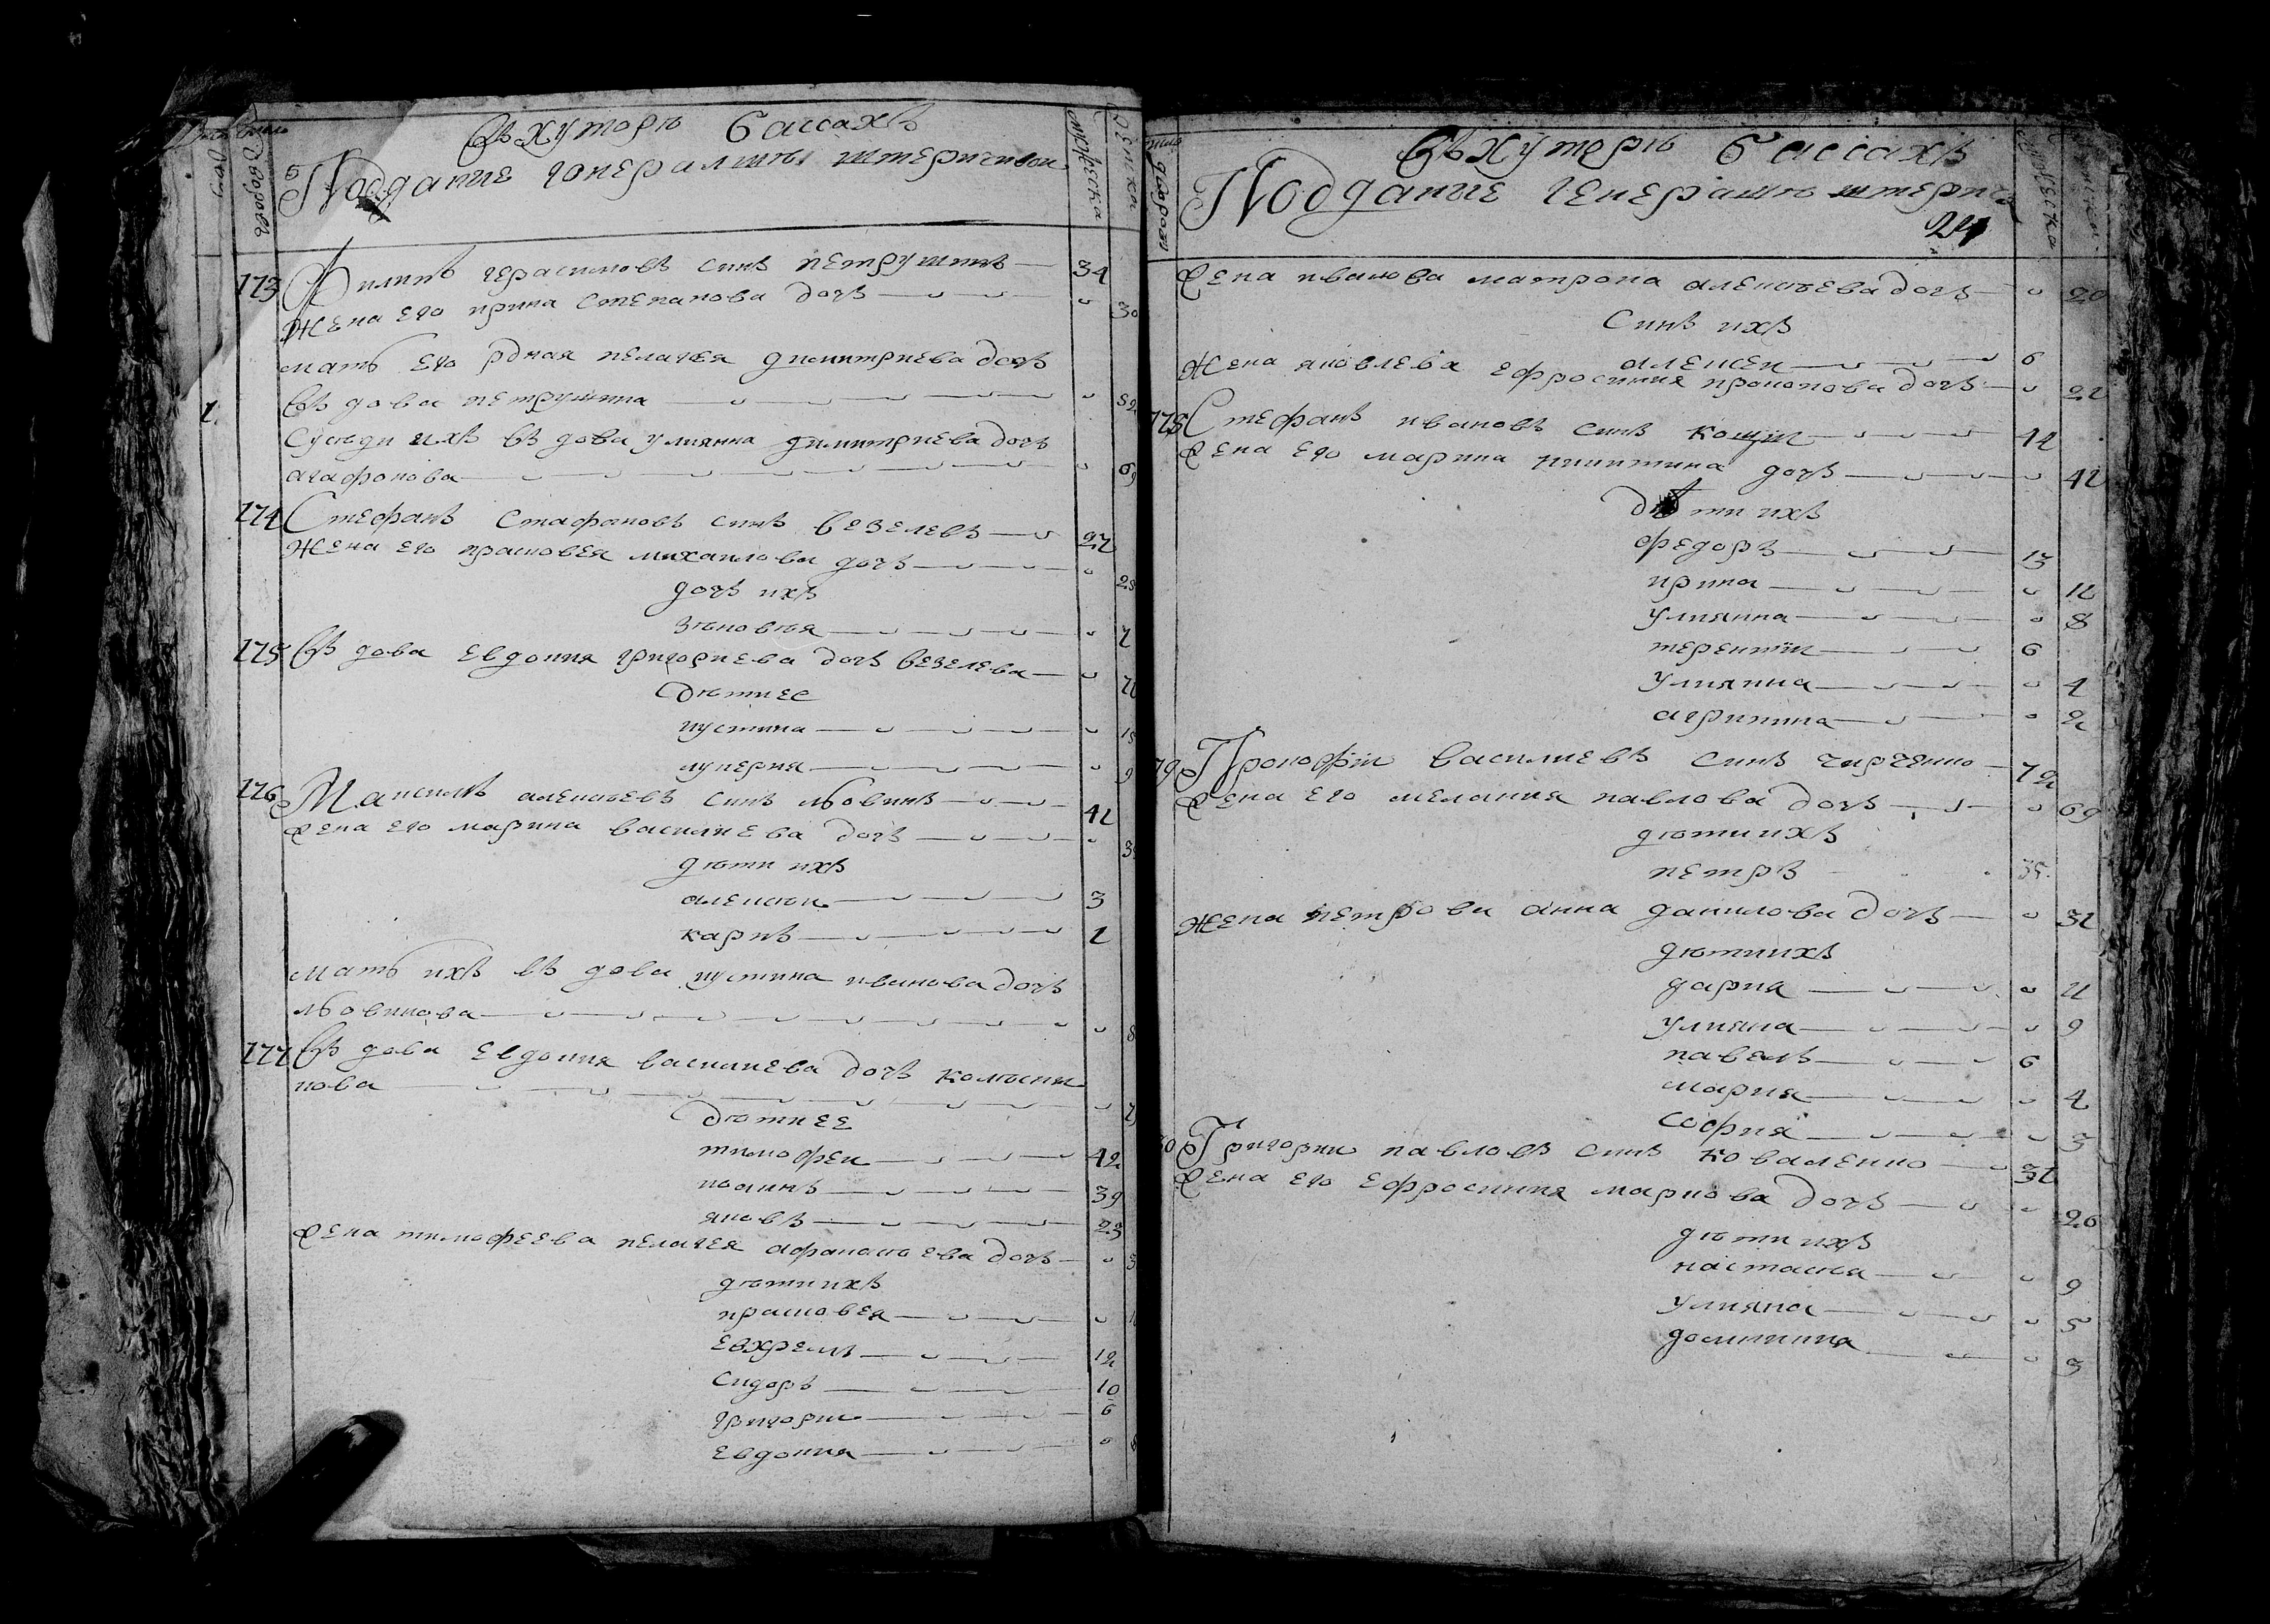 Въ хуторѣ Бассахъ
Подданные генералши штеричевои
мужеска
женска
дворовъ
173 Филипъ герасимовъ синъ петрушинъ 34
Жена его ирина степанова дочь 30
мать его рдная пелагея димитриева дочь
въ дова петрушина
1
Суседи ихъ въ дова улиянна димитриева дочь
агафонова 69
174 Стефанъ Стафановъ синъ везелевъ 27
Жена его прасковея михаилова дочъ 28
дочъ ихъ
зѣновѣя 7
175 Въ дова Евдокия григориева дочъ везелева
Дѣти ее
иустина 15
лукерия 9
176 Максимъ алексѣевъ синъ лбовинъ 41
Жена его марина василиева дочъ
дѣти ихъ
алексѣи 3
карпъ 1
мать ихъ въ дова иустина иванова дочъ
лбовинова
177 Въ дова Евдокия василиева дочъ колѣсни
кова
Дѣти ее
тимофеи 42
иоакимъ 39
яковъ 23
Жена тимофеева пелагея афанасѣева дочъ
дѣти ихъ
прасковея
Евхремъ 12
Сидоръ 10
григории 6
Евдокия
Въ хуторѣ Бассахъ
Подданные генералши штерич
24
мужеска
дворовъ
Жена иванова матрона алексѣева дочъ 20
Синъ ихъ
алексеи 6
Жена яковлева ефросиния прокопова дочъ 21
178 Стефанъ ивановъ синъ 44
Жена его марина никитина дочъ 41
Дѣти ихъ
федоръ 13
ирина 11
улиянна 8
терентии 6
улиянна 4
агрипина 2
79 Прокофии василиевъ синъ чирченко 72
Жена его мелания павлова дочъ 69
дѣти ихъ
петръ 35
Жена петрова анна данилова дочъ 31
дѣти ихъ
дария 11
улияна 9
павелъ 6
мария 4
София 3
80 Григории павловъ синъ коваленко 31
Жена его Ефросиния маркова дочъ 26
дѣти ихъ
настасѣя 9
улияна 5
домникия 3